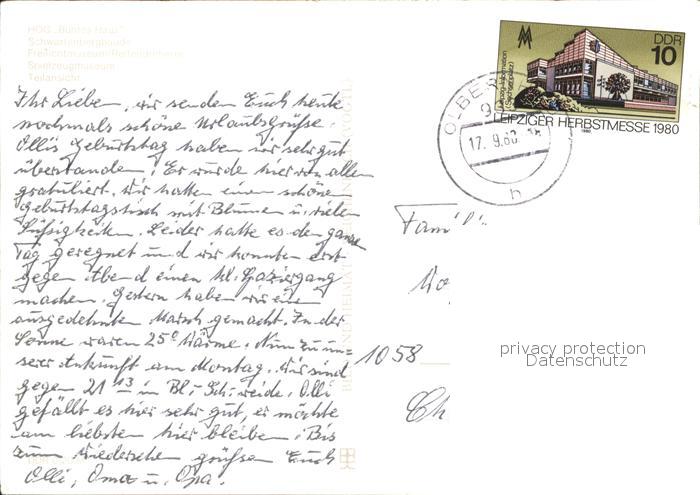 HOG „Buntes Haus"
Schwartenbergbaude
Freilichtmuseum Reiterdreherei
Spielzeugmuseum
Teilansicht
Ihr Lieben, wir senden Euch heute
nochmals schöne Urlaubsgrüße.
Olli's Geburtstag haben wir sehr gut
überstanden! Er wurde hier von allen
gratuliert. Wir hatten einen schönen
Geburtstagstisch mit Blumen u. vielen
Süßigkeiten. Leider hatte es den ganzen
Tag geregnet und wir konnten erst
gegen Abend einen kl. Spaziergang
machen. Gestern haben wir einen
ausgedehnten Marsch gemacht. In der
Sonne waren 25° Wärme. Nun zu un-
serer Ankunft am Montag. Wir sind
gegen 21 13 in Bl.-Schöneweide. Olli
gefällt es hier sehr gut, er möchte
am liebsten hier bleiben. Bis
zum Wiedersehen grüßen Euch
Olli, Oma u. Opa.
DDR
10
Leipzig-Information
(Sachsenplatz)
LEIPZIGER HERBSTMESSE 1980
OLBE
17.9.80
h
Fami
1058
Ch
privacy protection
Datenschutz